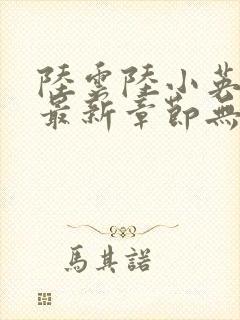 陸雲陸小英
最新章節無
馬其諾